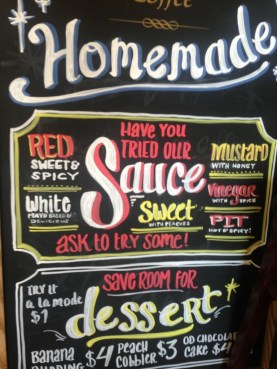 Coffee
Homemade
Have you
tried our
Sauce
RED
SWEET &
SPICY
White
MAYO BASED BF
Mustard
WITH HONEY
Vinegar
WITH SPICE
Sweet
WITH PEACHES
PIT
HOT & SPICY!
ASK to try some!
SAVE ROOM FOR
dessert
TRY IT
a la mode
$1
BANANA
PUDDING $4
PEACH
Cobbler $3
OD CHOCOLAT
CAKE $4